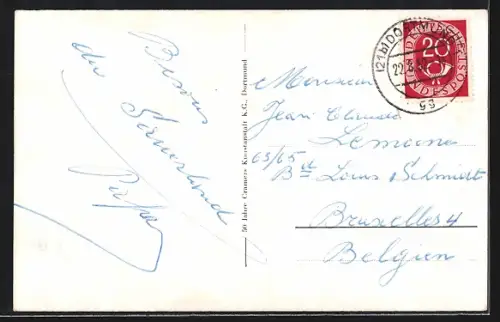 Bisous
du Sauerland
Papa
50 Jahre Cramers Kunstanstalt K.G., Dortmund
(21b) DORTMUND
gg
DEUTSCHE BUNDESPOST
20
Monsieur
Jean Claude
Lemoine
63/65
Bd Louis Schmidt
Bruxelles 4
Belgien